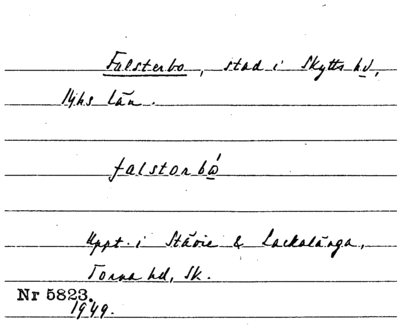 Falsterbo, stad i Skytts hd,
Mhs län.
falstorbó
Uppt. i Stävie & Lackalänga,
Torna hd, Sk.
Nr 5823.
1949.